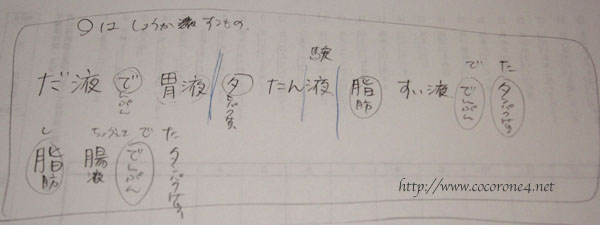 ○は しょうか するもの。
だ液 でんぷん 胃液 タンパク質 たん液 脂肪 すい液 で でんぷん た タンパク質
し 脂肪 ちょうえき 腸液 で でんぷん た タンパク質
http://www.cocorone4.net